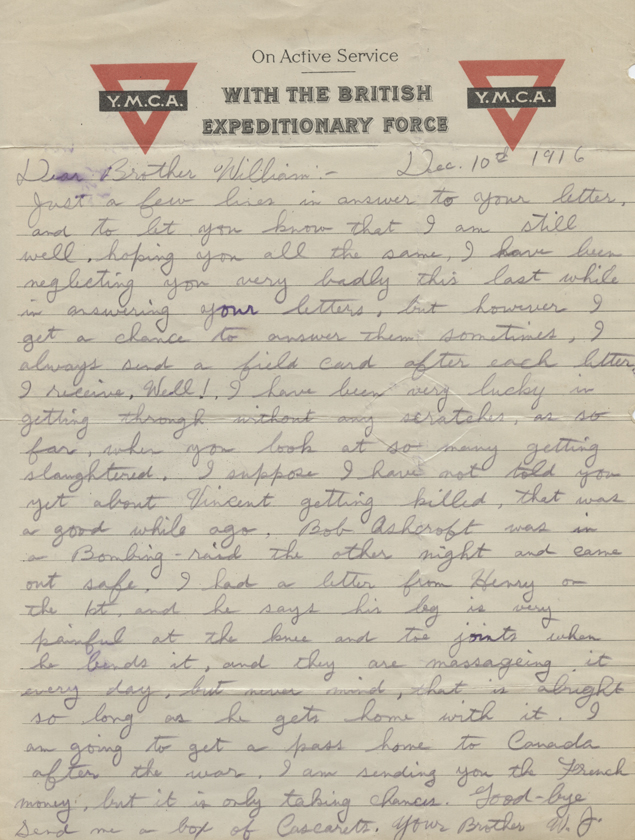 On Active Service
WITH THE BRITISH
EXPEDITIONARY FORCE
Y.M.C.A.
Y.M.C.A.
Dec. 10th 1916
Dear Brother William:-
Just a few lines in answer to your letter,
and to let you know that I am still
well, hoping you all the same, I have been
neglecting you very badly this last while
in answering your letters, but however I
get a chance to answer them sometimes, I
always send a field card after each letter,
I receive, Well!, I have been very lucky in
getting through without any scratches, as so
far, when you look at so many getting
slaughtered. I suppose I have not told you
yet about Vincent getting killed, that was
a good while ago, Bob Ashcroft was in
a Bombing-raid the other night and came
out safe. I had a letter from Henry on
the and he says his leg is very
painful at the knee and toe joints when
he bends it, and they are massageing it
every day, but never mind, that is alright
so long as he gets home with it. I
am going to get a pass home to Canada
after the war. I am sending you the French
money, but it is only taking chances. Good-bye
Send me a box of Cascarets. Your Brother W.J.